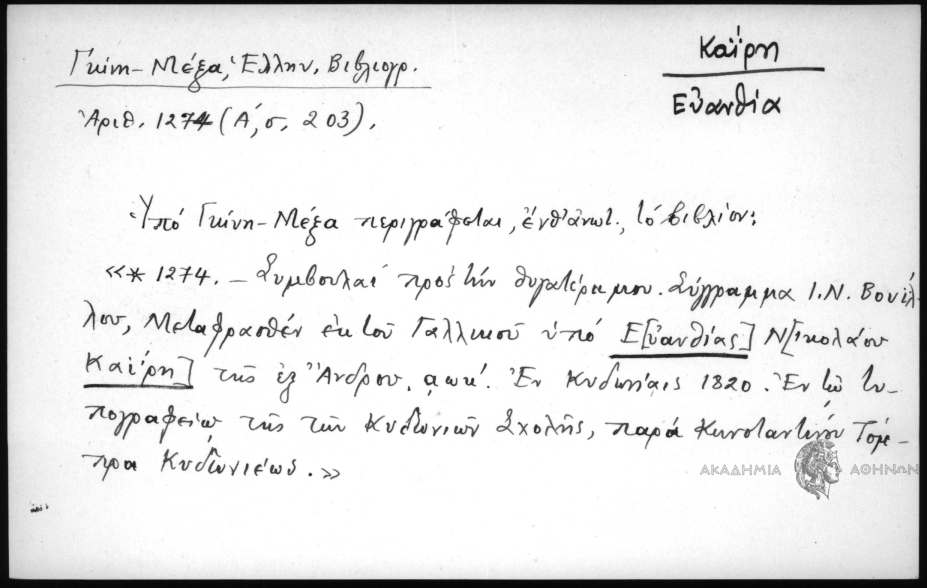 Γκίνη-Μέξα, Ἑλλην. Βιβλιογρ.
Ἀριθ. 1274 (Α΄, σ. 203).
Καΐρη
Εὐανθία
Ὑπό Γκίνη-Μέξα περιγράφεται, ἔνθ' ἀνωτ., τό βιβλίον:
«* 1274. – Συμβουλαί πρός τήν θυγατέρα μου. Σύγγραμμα Ι. Ν. Βουίλ-
λου, Μεταφρασθέν ἐκ τοῦ Γαλλικοῦ ὑπό Ε[ὐανθίας] Ν[ικολάου
Καΐρη] τῆς ἐξ Ἄνδρου, αωκ΄. Ἐν Κυδωνίαις 1820. Ἐν τῷ τυ-
πογραφείῳ τῆς τῶν Κυδωνιῶν Σχολῆς, παρά Κωνσταντίνου Τόμ-
πρα Κυδωνιέως.»
ΑΚΑΔΗΜΙΑ ΑΘΗΝΩΝ